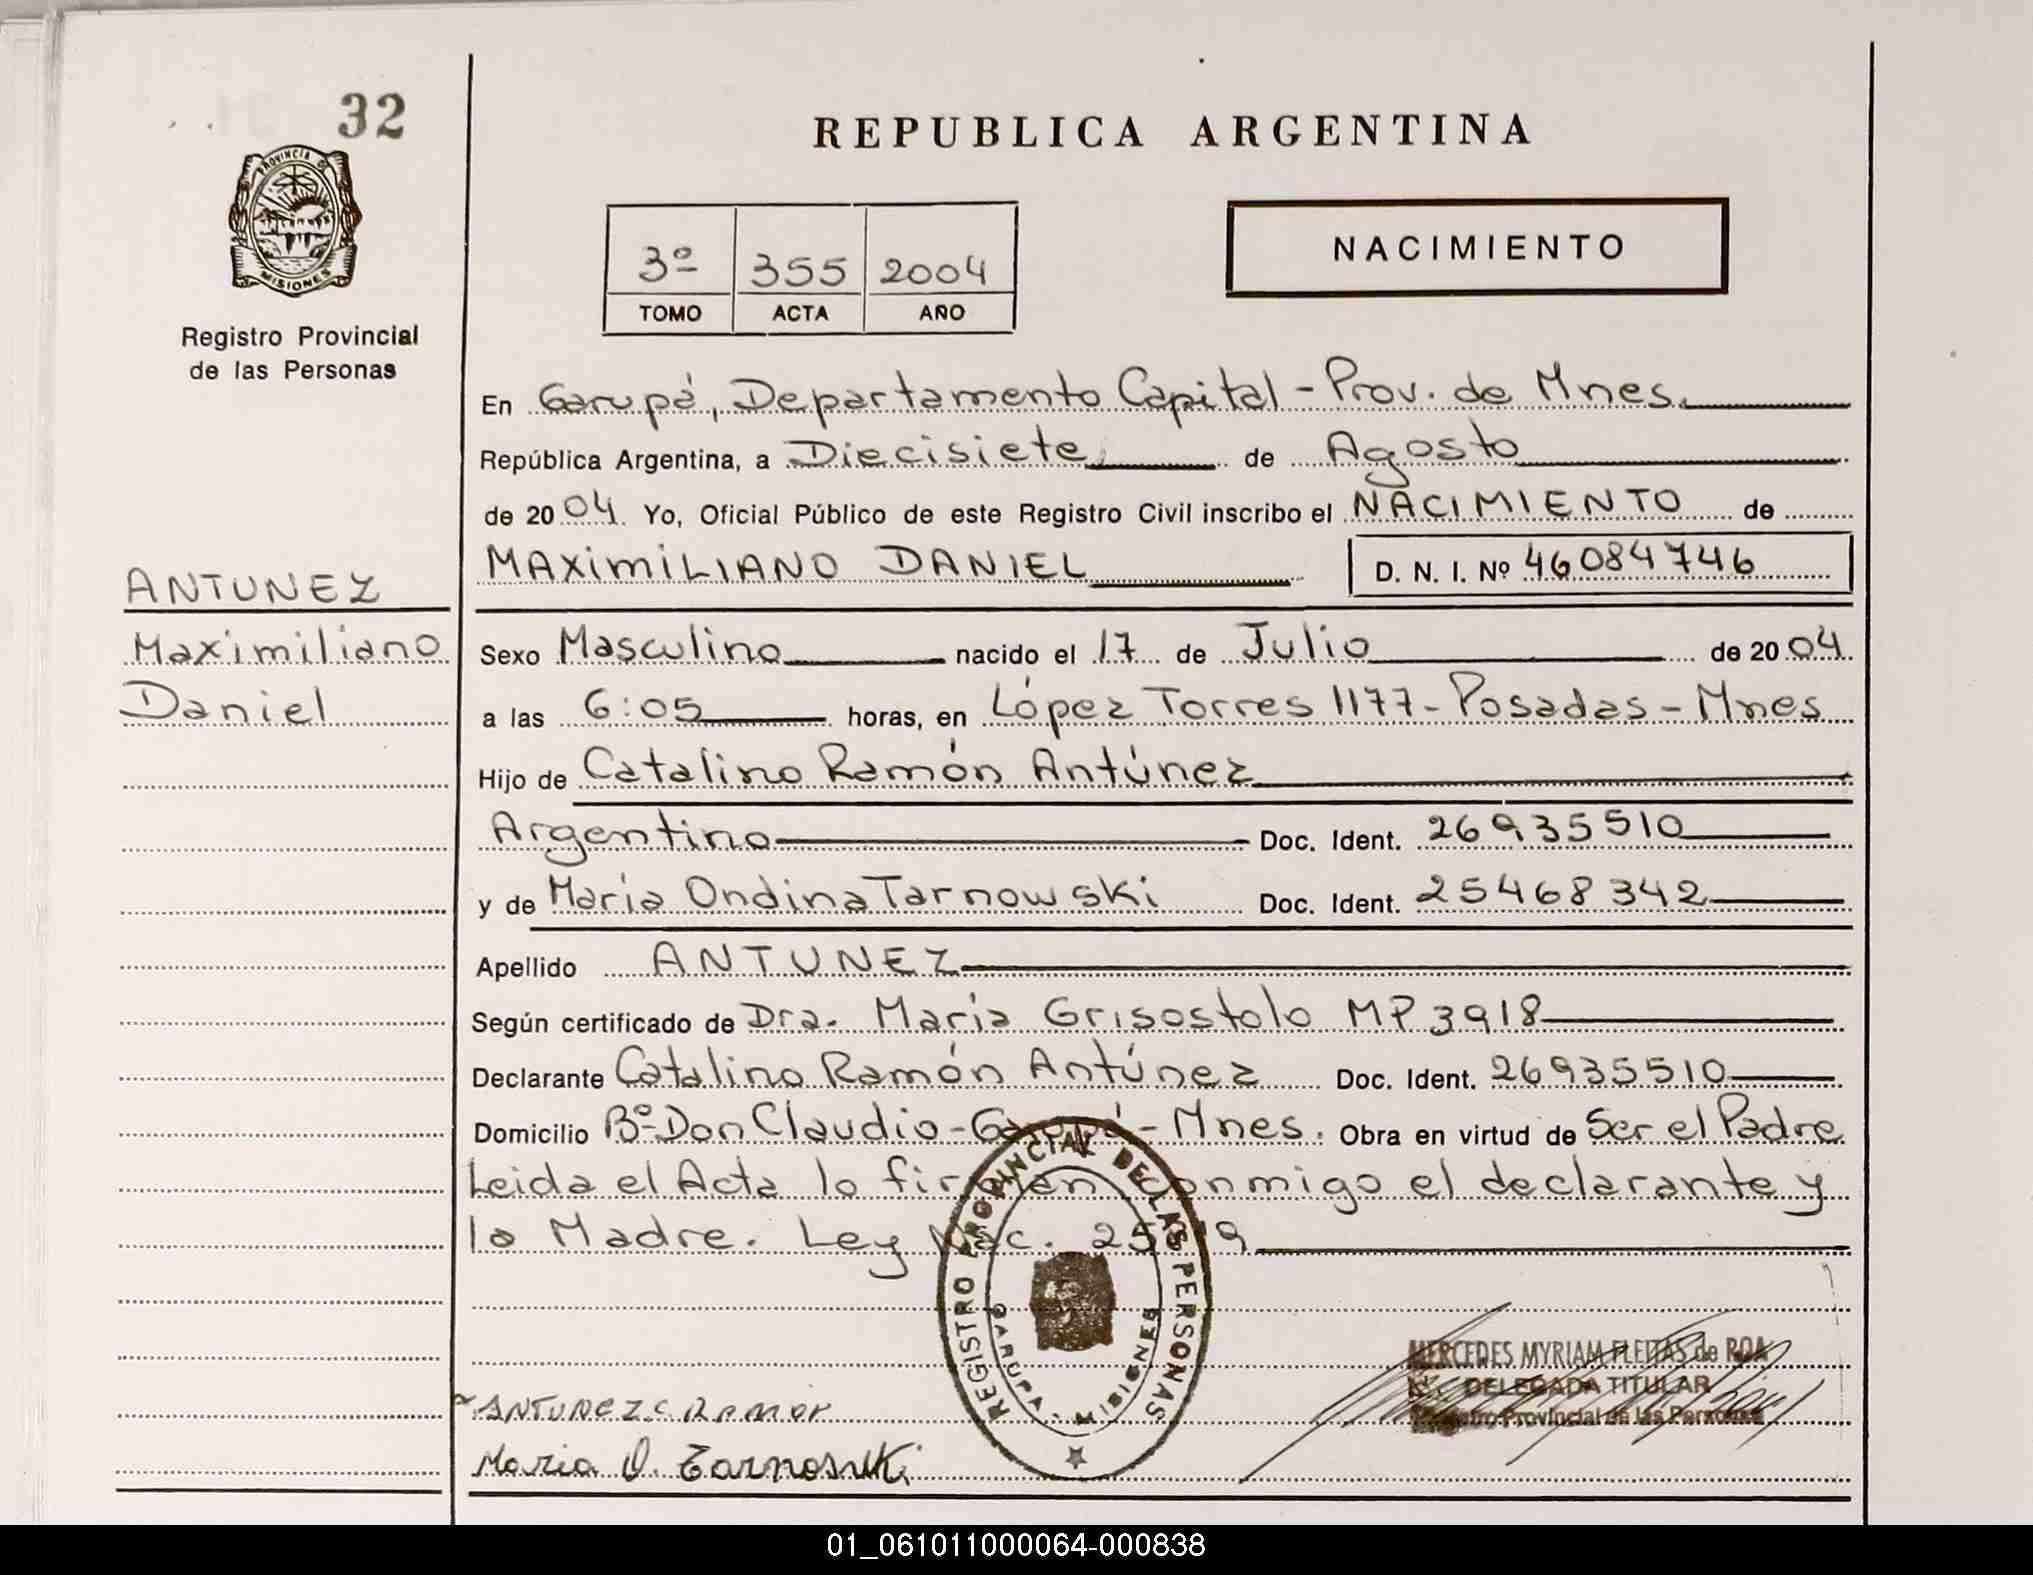 32
PROVINCIA DE
MISIONES
Registro Provincial
de las Personas
ANTUNEZ
Maximiliano
Daniel
REPUBLICA ARGENTINA
3º 355 2004
TOMO ACTA AÑO
NACIMIENTO
En Garupá, Departamento Capital - Prov. de Mnes.
República Argentina, a Diecisiete de Agosto
de 2004. Yo, Oficial Público de este Registro Civil inscribo el NACIMIENTO de
MAXIMILIANO DANIEL D. N. I. Nº 46084746
Sexo Masculino nacido el 17 de Julio de 2004
a las 6:05 horas, en López Torres 1177 - Posadas - Mnes
Hijo de Catalino Ramón Antúnez
Argentino Doc. Ident. 26935510
y de María Ondina Tarnowski Doc. Ident. 25468342
Apellido ANTUNEZ
Según certificado de Dra. María Grisostolo MP 3918
Declarante Catalino Ramón Antúnez Doc. Ident. 26935510
Domicilio Bº Don Claudio - Garupá - Mnes. Obra en virtud de Ser el Padre
Leida el Acta lo firman conmigo el declarante y
la Madre. Ley Nac.
REGISTRO PROVINCIAL DE LAS PERSONAS
GARUPA - MISIONES
MERCEDES MYRIAM FLEITAS de ROA
DELEGADA TITULAR
Registro Provincial de las Personas
ANTUNEZ C. Ramon
Maria O. Tarnowski
01_061011000064-000838